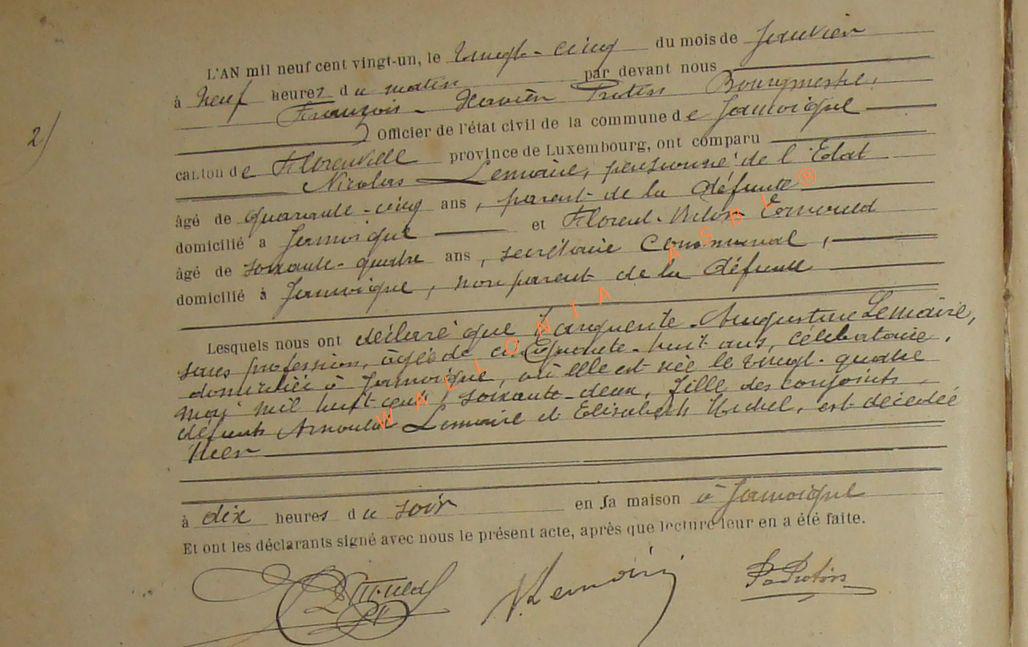 2/
L'AN mil neuf cent vingt-un, le vingt-cinq du mois de Janvier
à Neuf heures du matin par devant nous
François Bourgmestre,
Officier de l'état civil de la commune de Jamoigne
canton de Florenville province de Luxembourg, ont comparu
Nicolas Lemaire, pensionné de l'Etat
âgé de quarante-cinq ans, parent de la défunte
domicilié à Jamoigne et Florent
âgé de soixante-quatre ans, secrétaire Communal,
domicilié à Jamoigne, non parent de la défunte
Lesquels nous ont déclaré que Augustine Lemaire,
sans profession, agée de cinquante-huit ans, célibataire,
domiciliée à Jamoigne, où elle est née le vingt-quatre
mai mil huit cent soixante-deux, fille des conjoints
défunts Arnould Lemaire et Elisabeth Michel, est décédée
Hier
à dix heures du soir en sa maison à Jamoigne
Et ont les déclarants signé avec nous le présent acte, après que lecture leur en a été faite.
N. Lemaire
WALLONIA ASBL ®